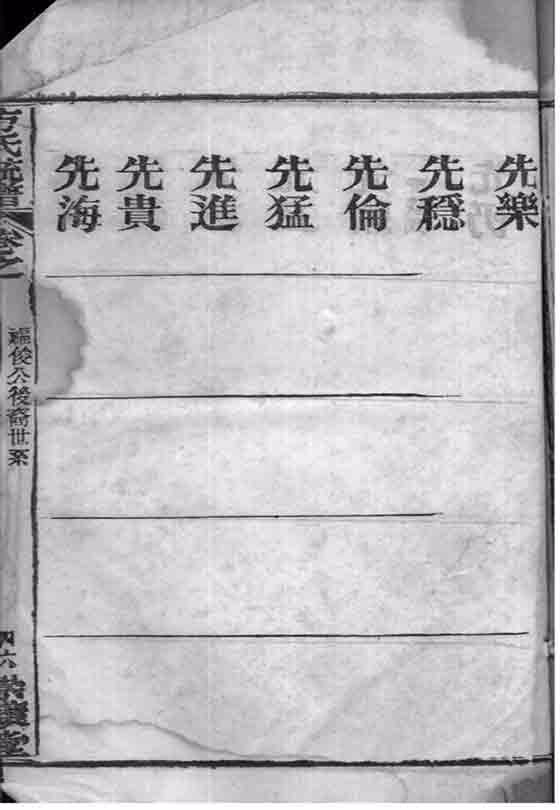 先樂
先穩
先倫
先猛
先進
先貴
先海
方氏統譜
卷之
福俊公後裔世系
四六
堂